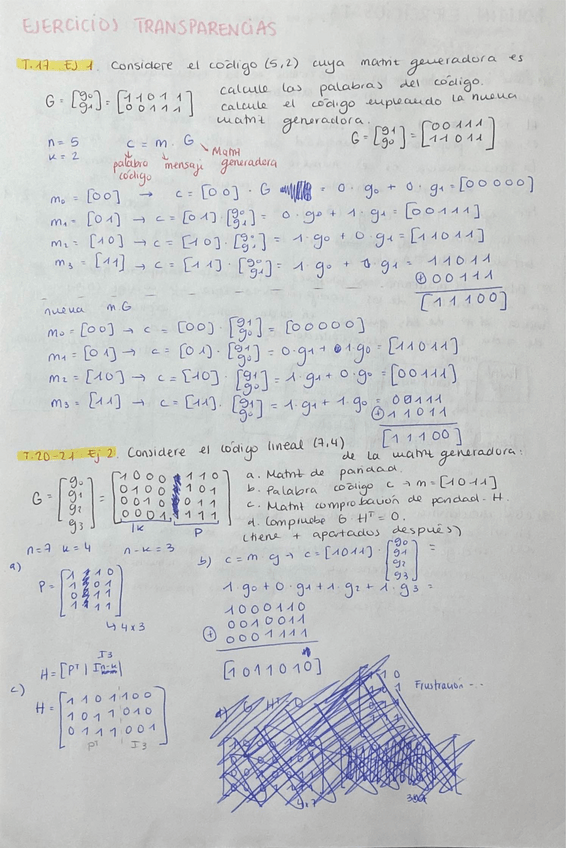 EJERCICIOS TRANSPARENCIAS
T.17 Ej 1. Considere el código (5,2) cuya matriz generadora es
G = [g0 g1] = [11011 00111] calcule las palabras del código.
calcule el código empleando la nueva
matriz generadora.
G = [g1 g0] = [00111 11011]
n = 5
k = 2
c = m · G
palabra código mensaje Matriz generadora
m0 = [00] → c = [00] · G = 0 · g0 + 0 · g1 = [00000]
m1 = [01] → c = [01] · [g0 g1] = 0 · g0 + 1 · g1 = [00111]
m2 = [10] → c = [10] · [g0 g1] = 1 · g0 + 0 · g1 = [11011]
m3 = [11] → c = [11] · [g0 g1] = 1 · g0 + g1 = 11011
⊕ 00111
[11100]
nueva mG
m0 = [00] → c = [00] · [g1 g0] = [00000]
m1 = [01] → c = [01] · [g1 g0] = 0·g1 + 1·g0 = [11011]
m2 = [10] → c = [10] · [g1 g0] = 1·g1 + 0·g0 = [00111]
m3 = [11] → c = [11] · [g1 g0] = 1·g1 + 1·g0 = 00111
⊕ 11011
[11100]
T.20-21 Ej 2. Considere el código lineal (7,4)
de la matriz generadora:
G = [g0 g1 g2 g3] = [1000 110 0100 101 0010 011 0001 111]
Ik P
a. Matriz de paridad.
b. Palabra código c → m = [1011]
c. Matriz comprobación de paridad - H.
d. Compruebe G·H^T = 0.
(tiene + apartados después)
n=7 k=4 n-k=3
a) P = [110 101 011 111]
↳ 4x3
b) c = m g → c = [1011] · [g0 g1 g2 g3] =
1·g0 + 0·g1 + 1·g2 + 1·g3 =
1000110
0010011
⊕ 0001111
[1011010]
I3
H = [P^T | In-k]
c) H = [1101100 1011010 0111001]
P^T I3
Frustración...